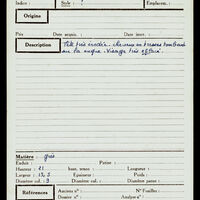 Indice : Style : Emplacem. :
Origine
Prix Date acquis. : Date insert. :
Description Tête très érodée. cheveux en tresses tombant
sur la nuque. Visage très effacé.
Matière : grès
Enduit : Patine :
Hauteur : 21 haut. tenon : Longueur :
Largeur : 13,5 Épaisseur : Poids :
Diamètre : 9 Diamètre col. : Diamètre panse :
Références Anciens n° : N° Fouilles :
Dossier n° : Analyse n° :